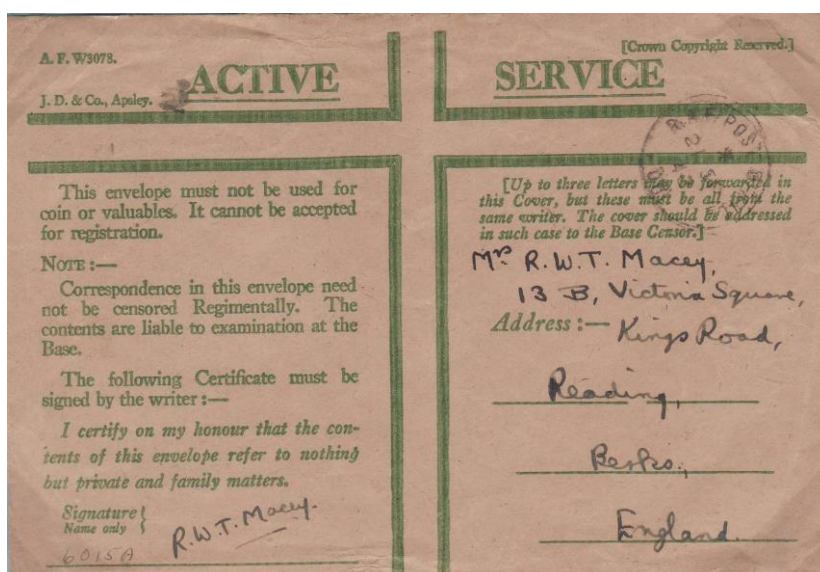 A. F. W3078.
[Crown Copyright Reserved.]
ACTIVE SERVICE
J. D. & Co., Apsley.
This envelope must not be used for
coin or valuables. It cannot be accepted
for registration.
NOTE :—
Correspondence in this envelope need
not be censored Regimentally. The
contents are liable to examination at the
Base.
The following Certificate must be
signed by the writer :—
I certify on my honour that the con-
tents of this envelope refer to nothing
but private and family matters.
Signature
Name only
R.W.T. Macey.
6015A
[Up to three letters may be forwarded in
this Cover, but these must be all from the
same writer. The cover should be addressed
in such case to the Base Censor.]
Mrs R.W.T. Macey,
13 B, Victoria Square,
Address :— Kings Road,
Reading,
Berks.,
England.